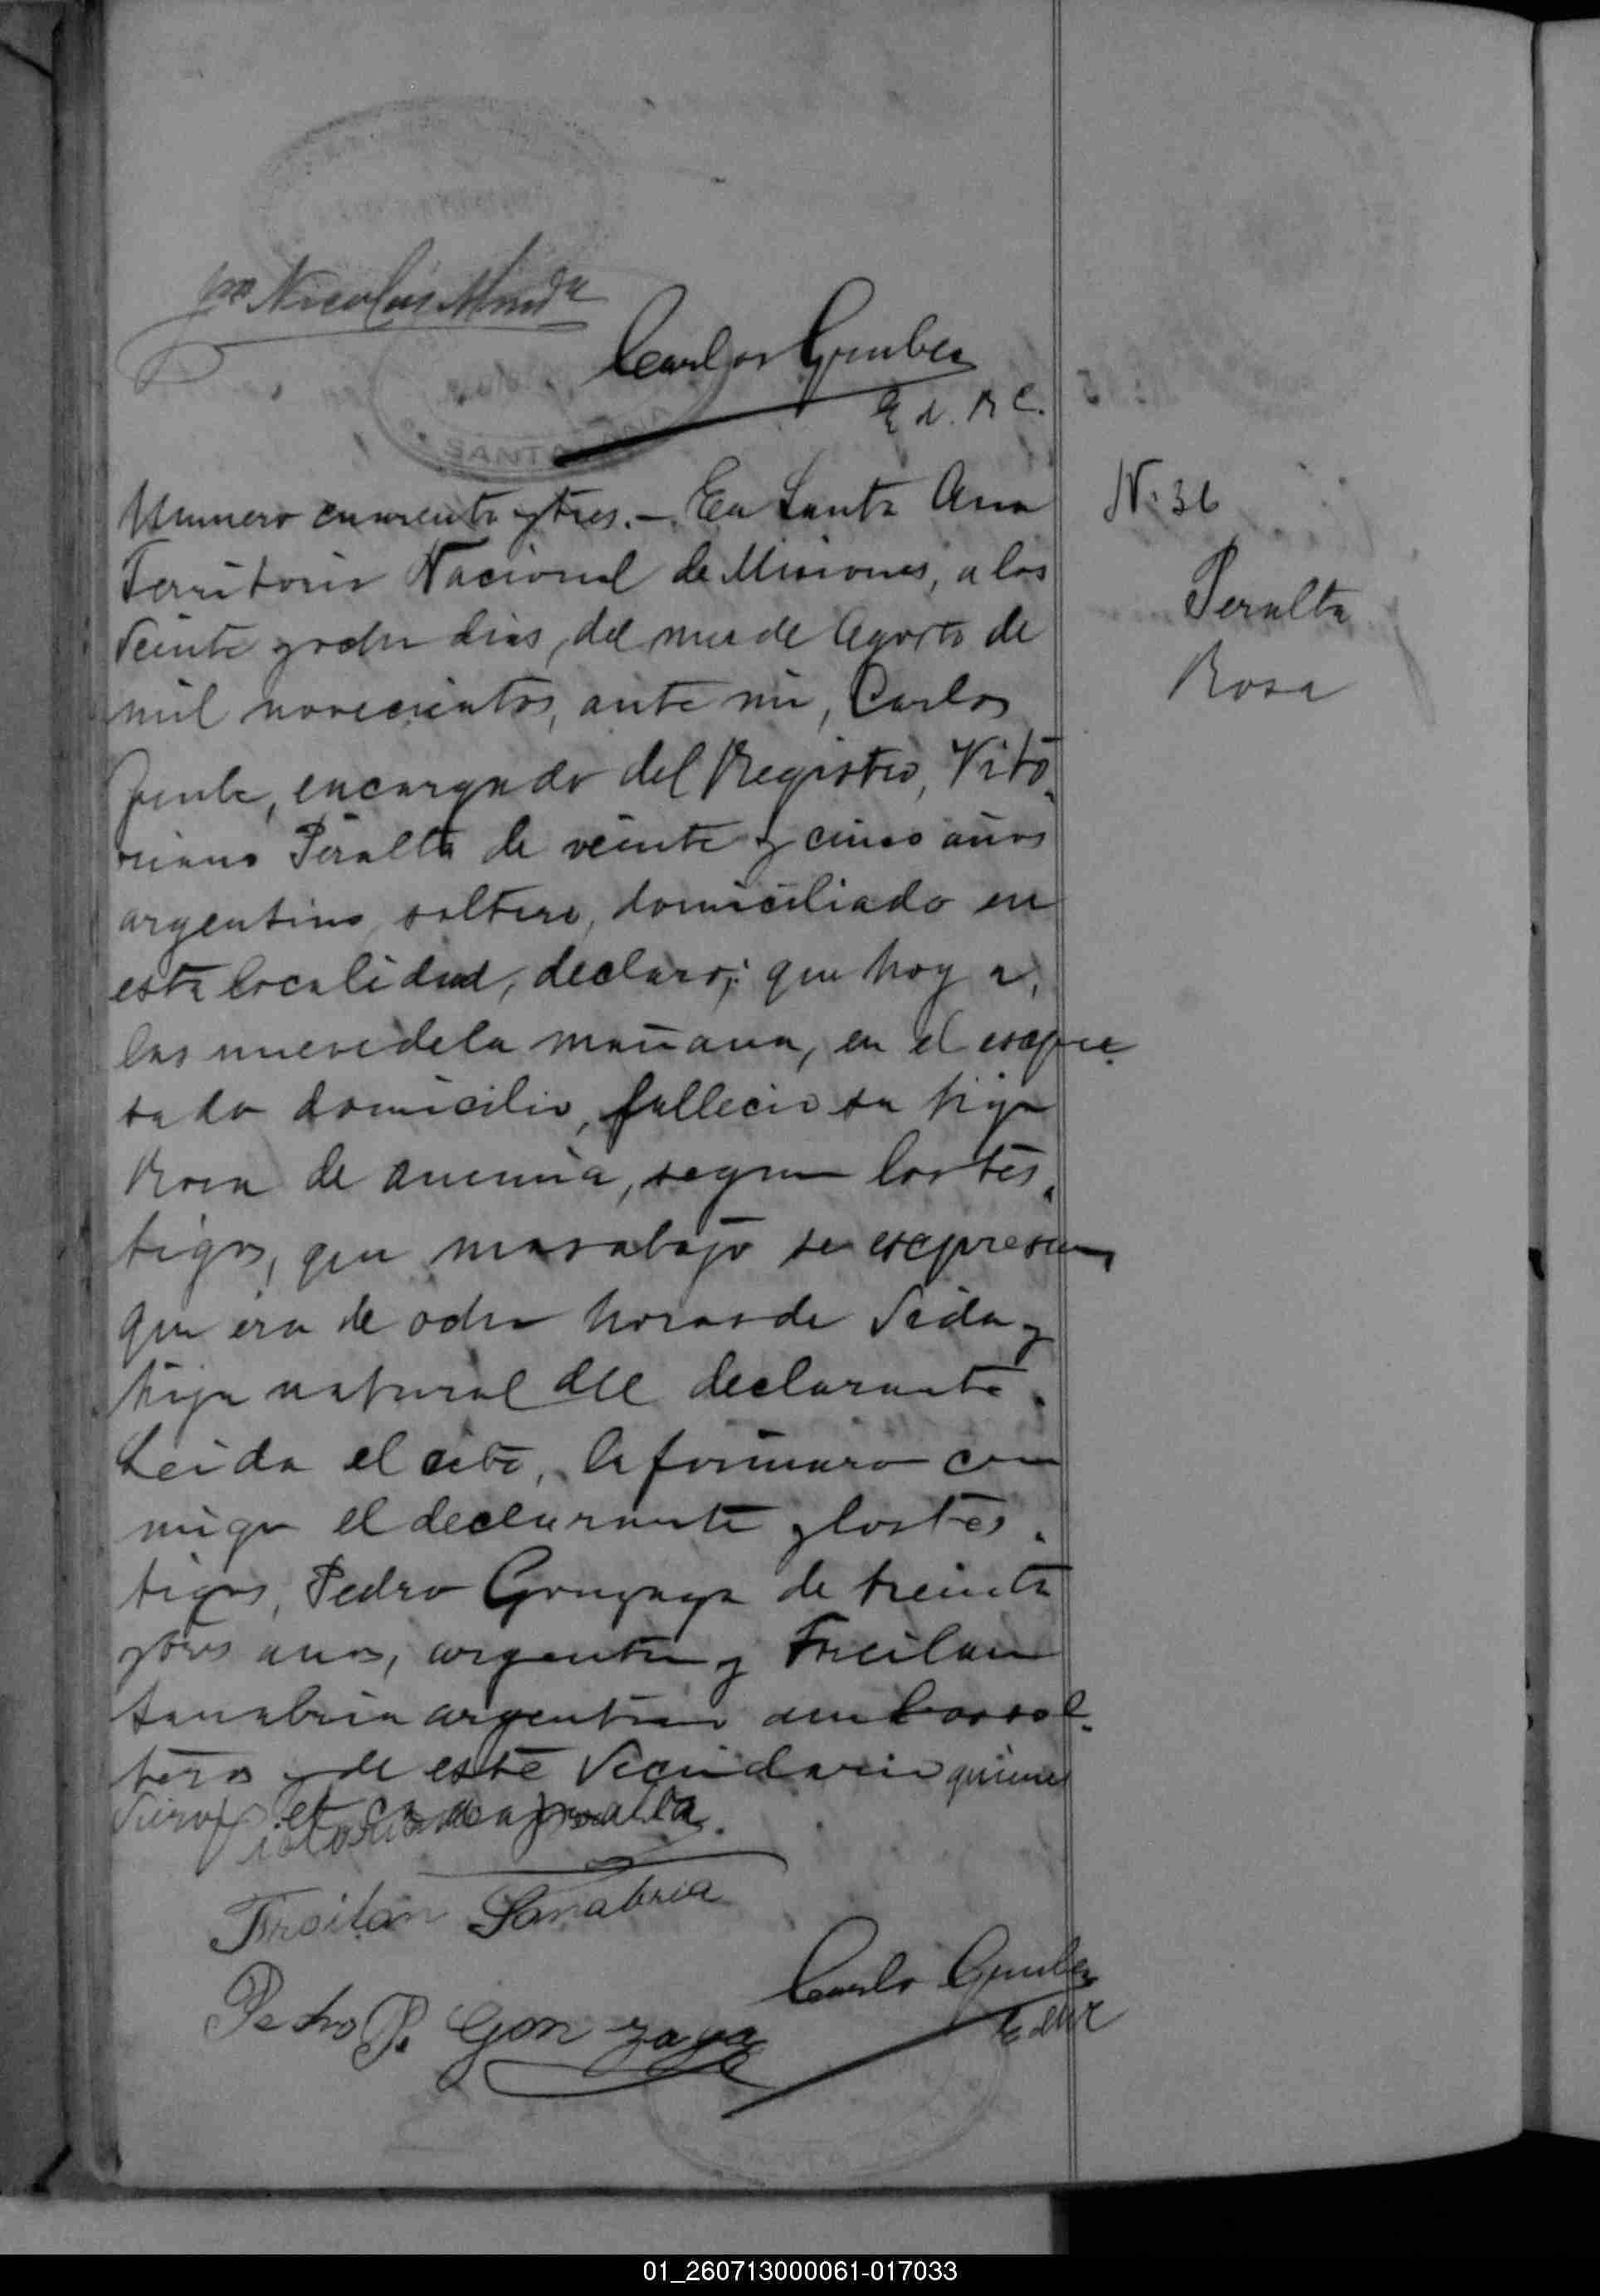 Nicolás
Carlos Gruber
E d. R C.
Numero cuarenta y tres. — En Santa Ana
Territorio Nacional de Misiones, a los
veinte y ocho dias, del mes de Agosto de
mil novecientos, ante mi, Carlos
encargado del Registro, Vito
riano Peralta de veinte y cinco años
argentino, soltero, domiciliado en
esta localidad, declaro; que hoy a
las nueve de la mañana, en el escpre
sado domicilio, fallecio su hija
Rosa de anemia, segun los tes
tigos, que mas abajo se escpresan,
que era de ocho horas de vida y
hija natural del declarante.
Leida el acta, la firmaro con
migo el declarante y los tes
tigos, Pedro Gonzaga de treinta
y tres anos, argentino y Froilan
Sanabria argentino ambos sol
teros y de este Vecindario quienes
Froilan Sanabria
Pedro P. Gonzaga
Carlo Gruber
E d R C
Nº 36
Peralta
Rosa
01_260713000061-017033